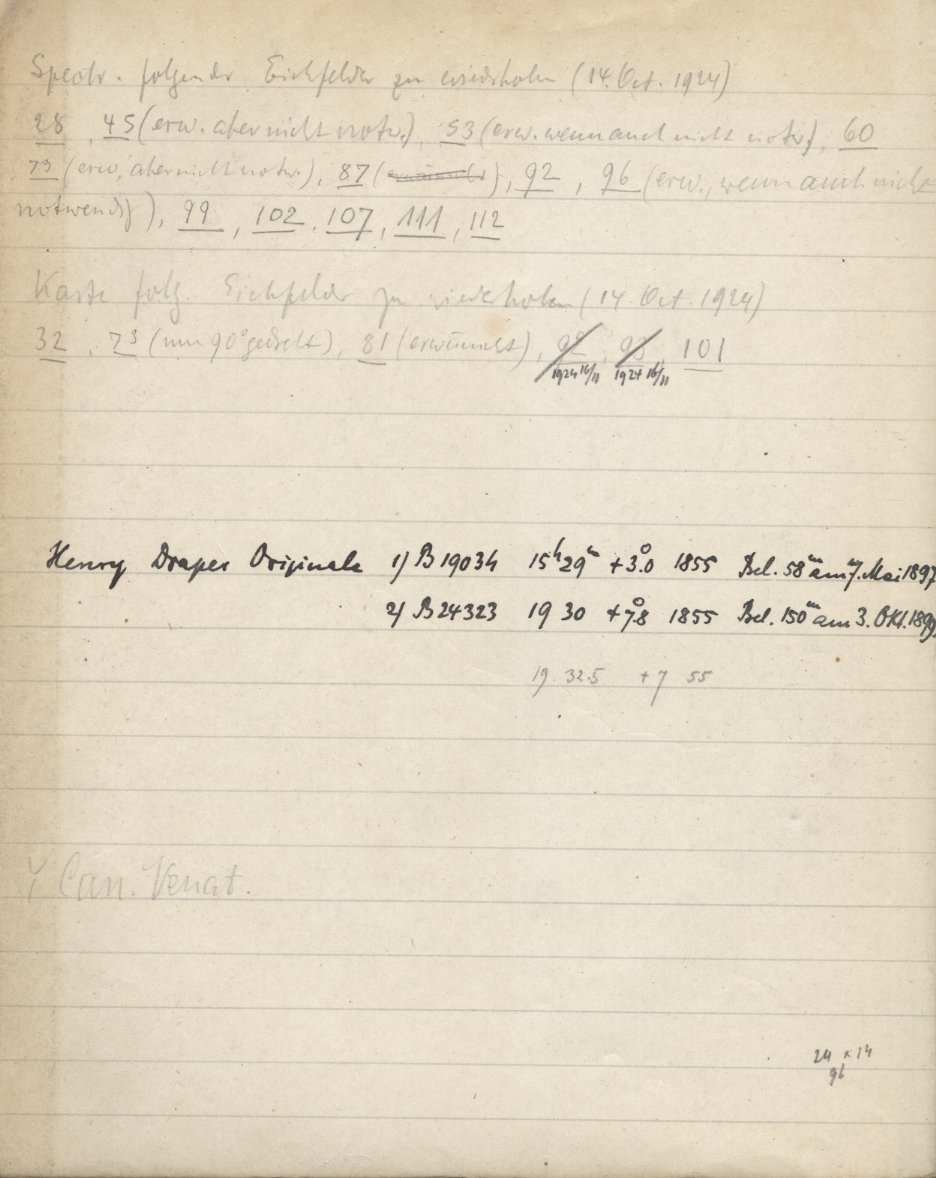 Spectr. folgender Eichfelder zu wiederholen (14. Oct. 1924)
28, 45 (erw. aber nicht notw.), 53 (erw. wenn auch nicht notw.), 60
73 (erw. aber nicht notw.), 87 (erwünscht), 92, 96 (erw., wenn auch nicht
notwendig), 99, 102, 107, 111, 112
Karte folg. Eichfelder zu wiederholen (14. Oct. 1924)
32, 73 (um 90° gedreht), 81 (erwünscht), 92, 98, 101
1924 16/11 1924 16/11
Henry Draper Originale 1) B 19034 15h 29m +3°.0 1855 Bel. 58m am 7. Mai 1897
2) B 24323 19 30 +7°.8 1855 Bel. 150m am 3. Okt. 1899
19. 32.5 +7 55
Y Can. Venat.
24 x 14
96